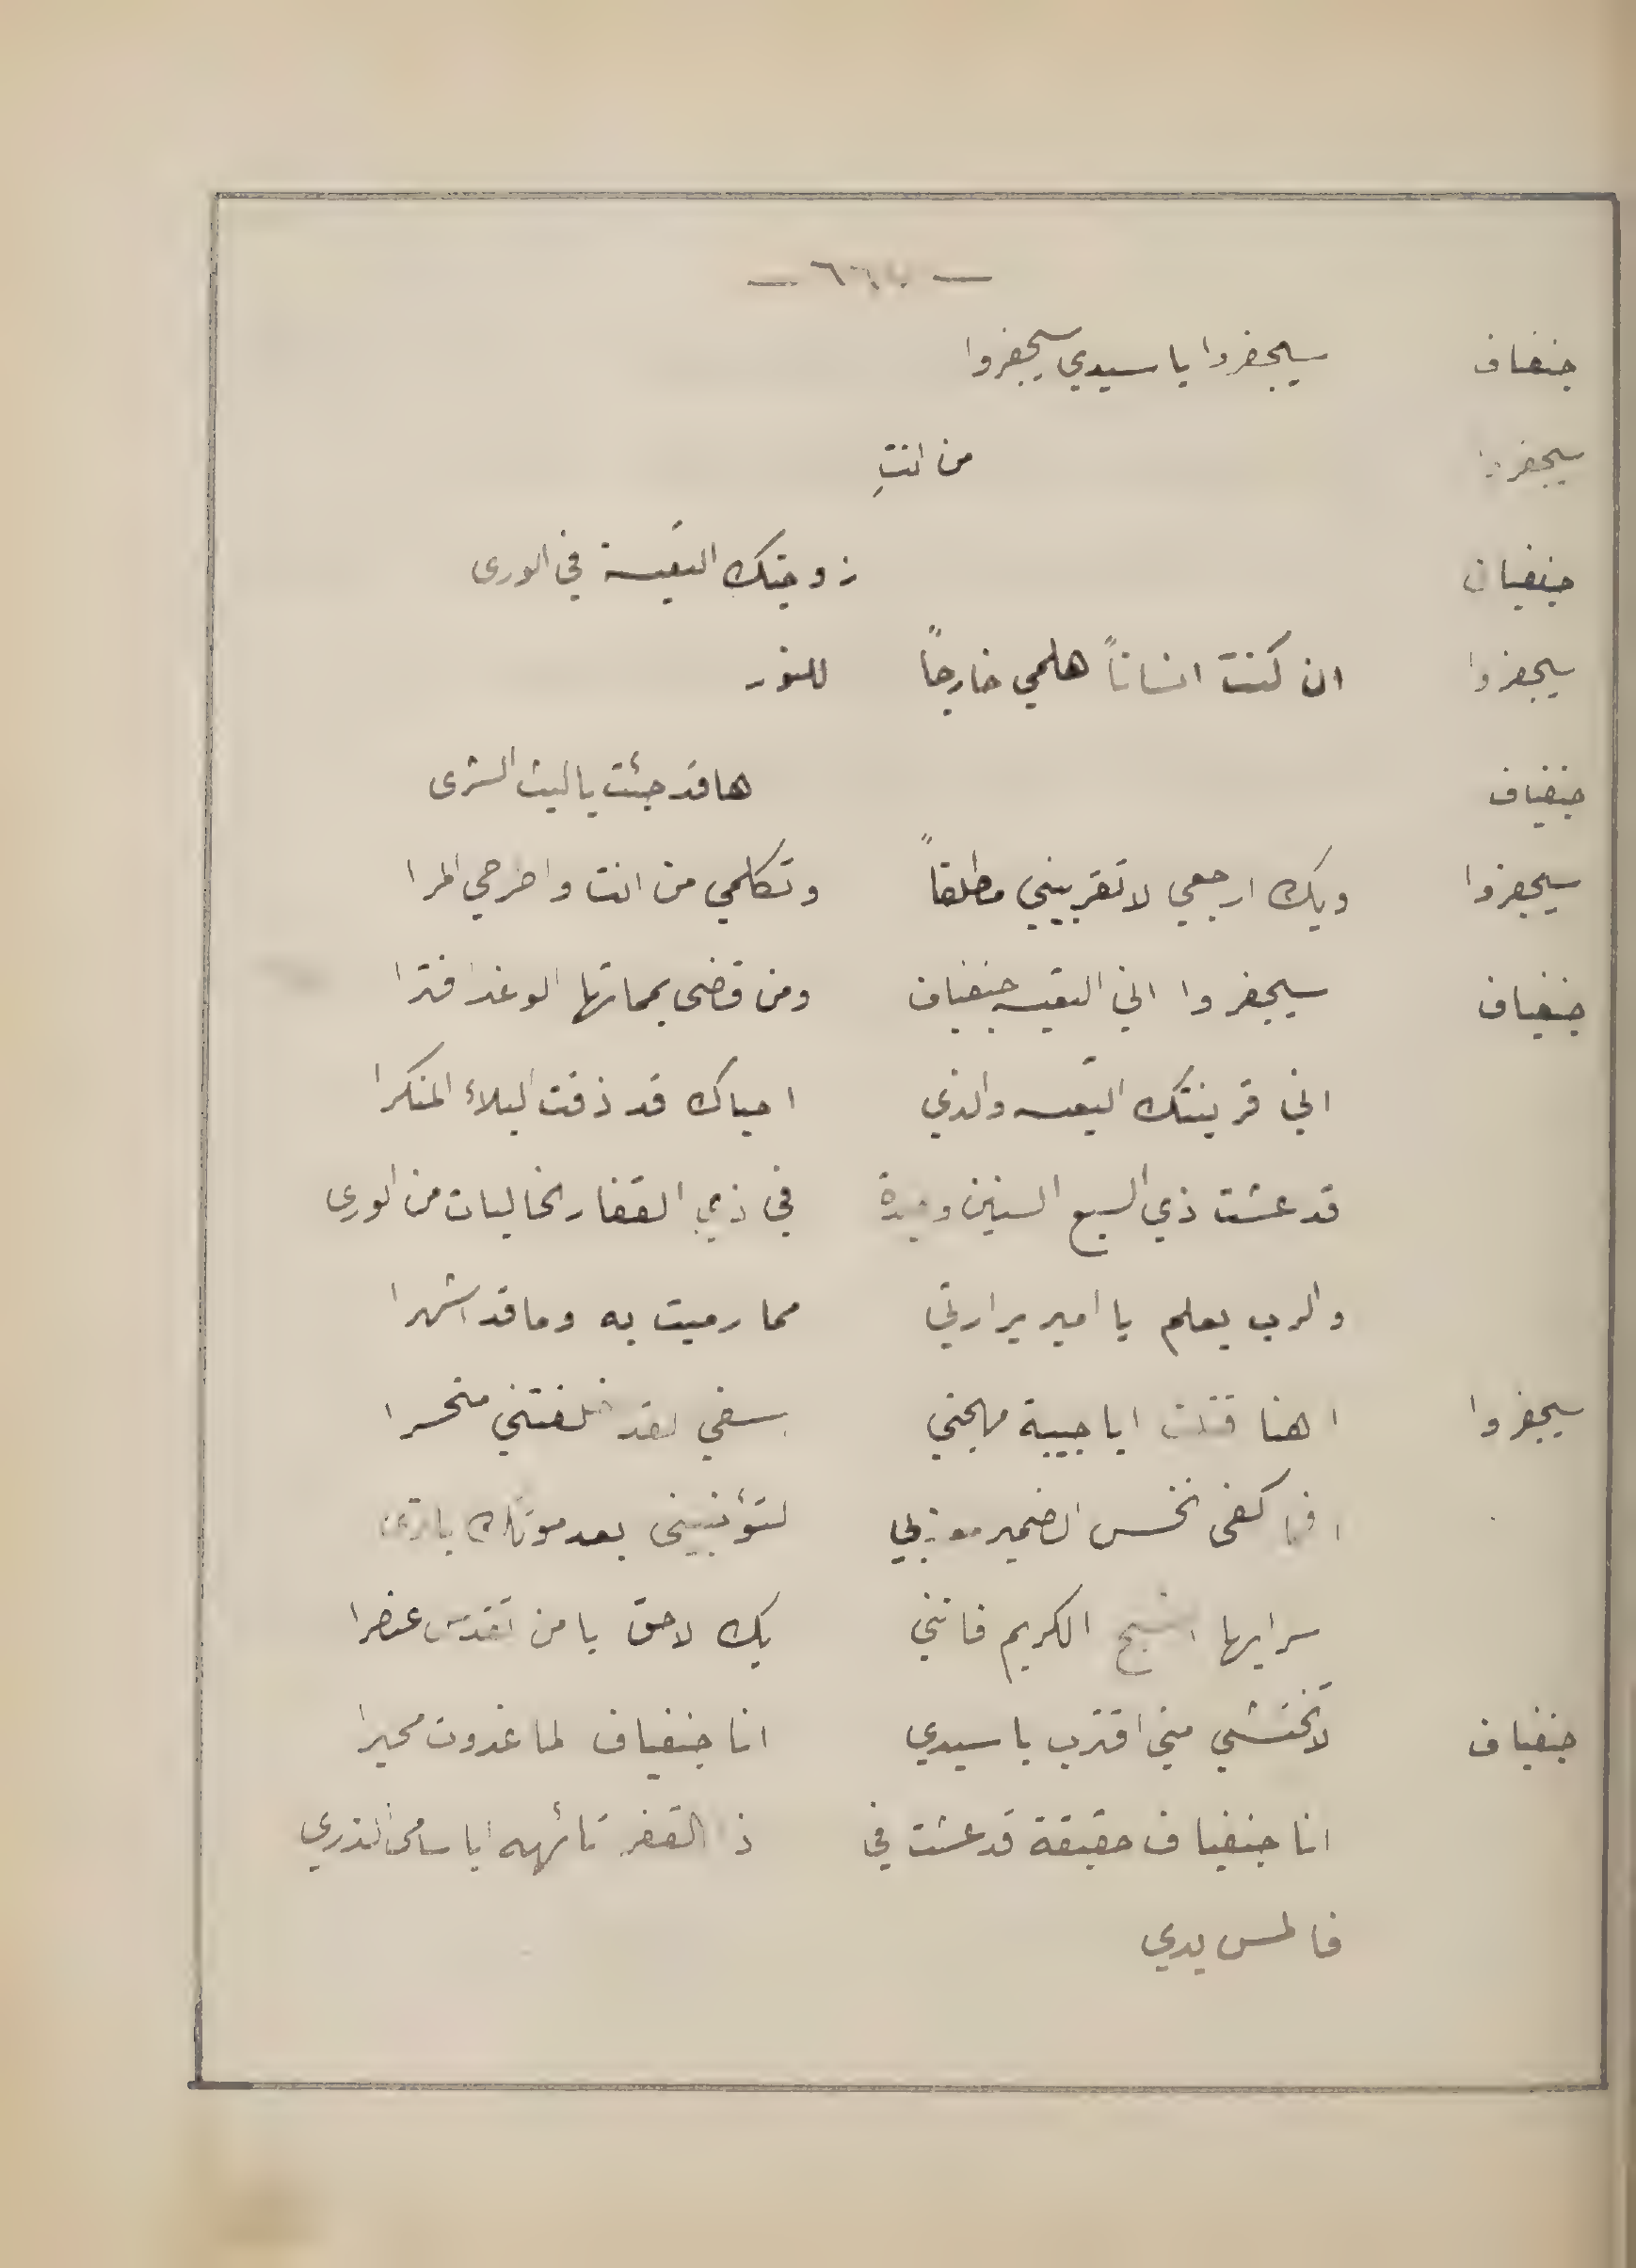 جنفياف سيجفروا يا سيدي سيجفروا
سيجفروا من انتِ
جنفياف زوجتك التعيسة في الورى
سيجفروا ان كنت انساناً هلمي خارجاً للنور
جنفياف ها قد جئت يا ليث الشرى
سيجفروا ويك ارجعي لا تقربيني مطلقاً وتكلمي من انت واطرحي المرا
جنفياف سيجفروا اني التعيسه جنفياف ومن قضى بمماتها الوغد افترا
اني قرينتك التعيسه والذي احياك قد ذقت البلاء المنكرا
قد عشت ذي السبع السنين وحيدة في ذي القفار الخاليات من الورى
والرب يعلم يا امير برارتي مما رميت به وما قد اشهرا
سيجفروا اهنا قتلت ايا حبيبة مهجتي سفي لقد خلفتني متحسرا
افما كفى نخس الضمير معذبي لتؤنبيني بعد موتك يا ترى
سر ايها الشبح الكريم فانني بك لاحق يا من تقدس عنصرا
جنفياف لا تختشي مني اقترب يا سيدي انا جنفياف لما غدوت محيرا
انا جنفياف حقيقة قد عشت في ذا القفر تائهه ايا سامي الذرى
فالمس يدي